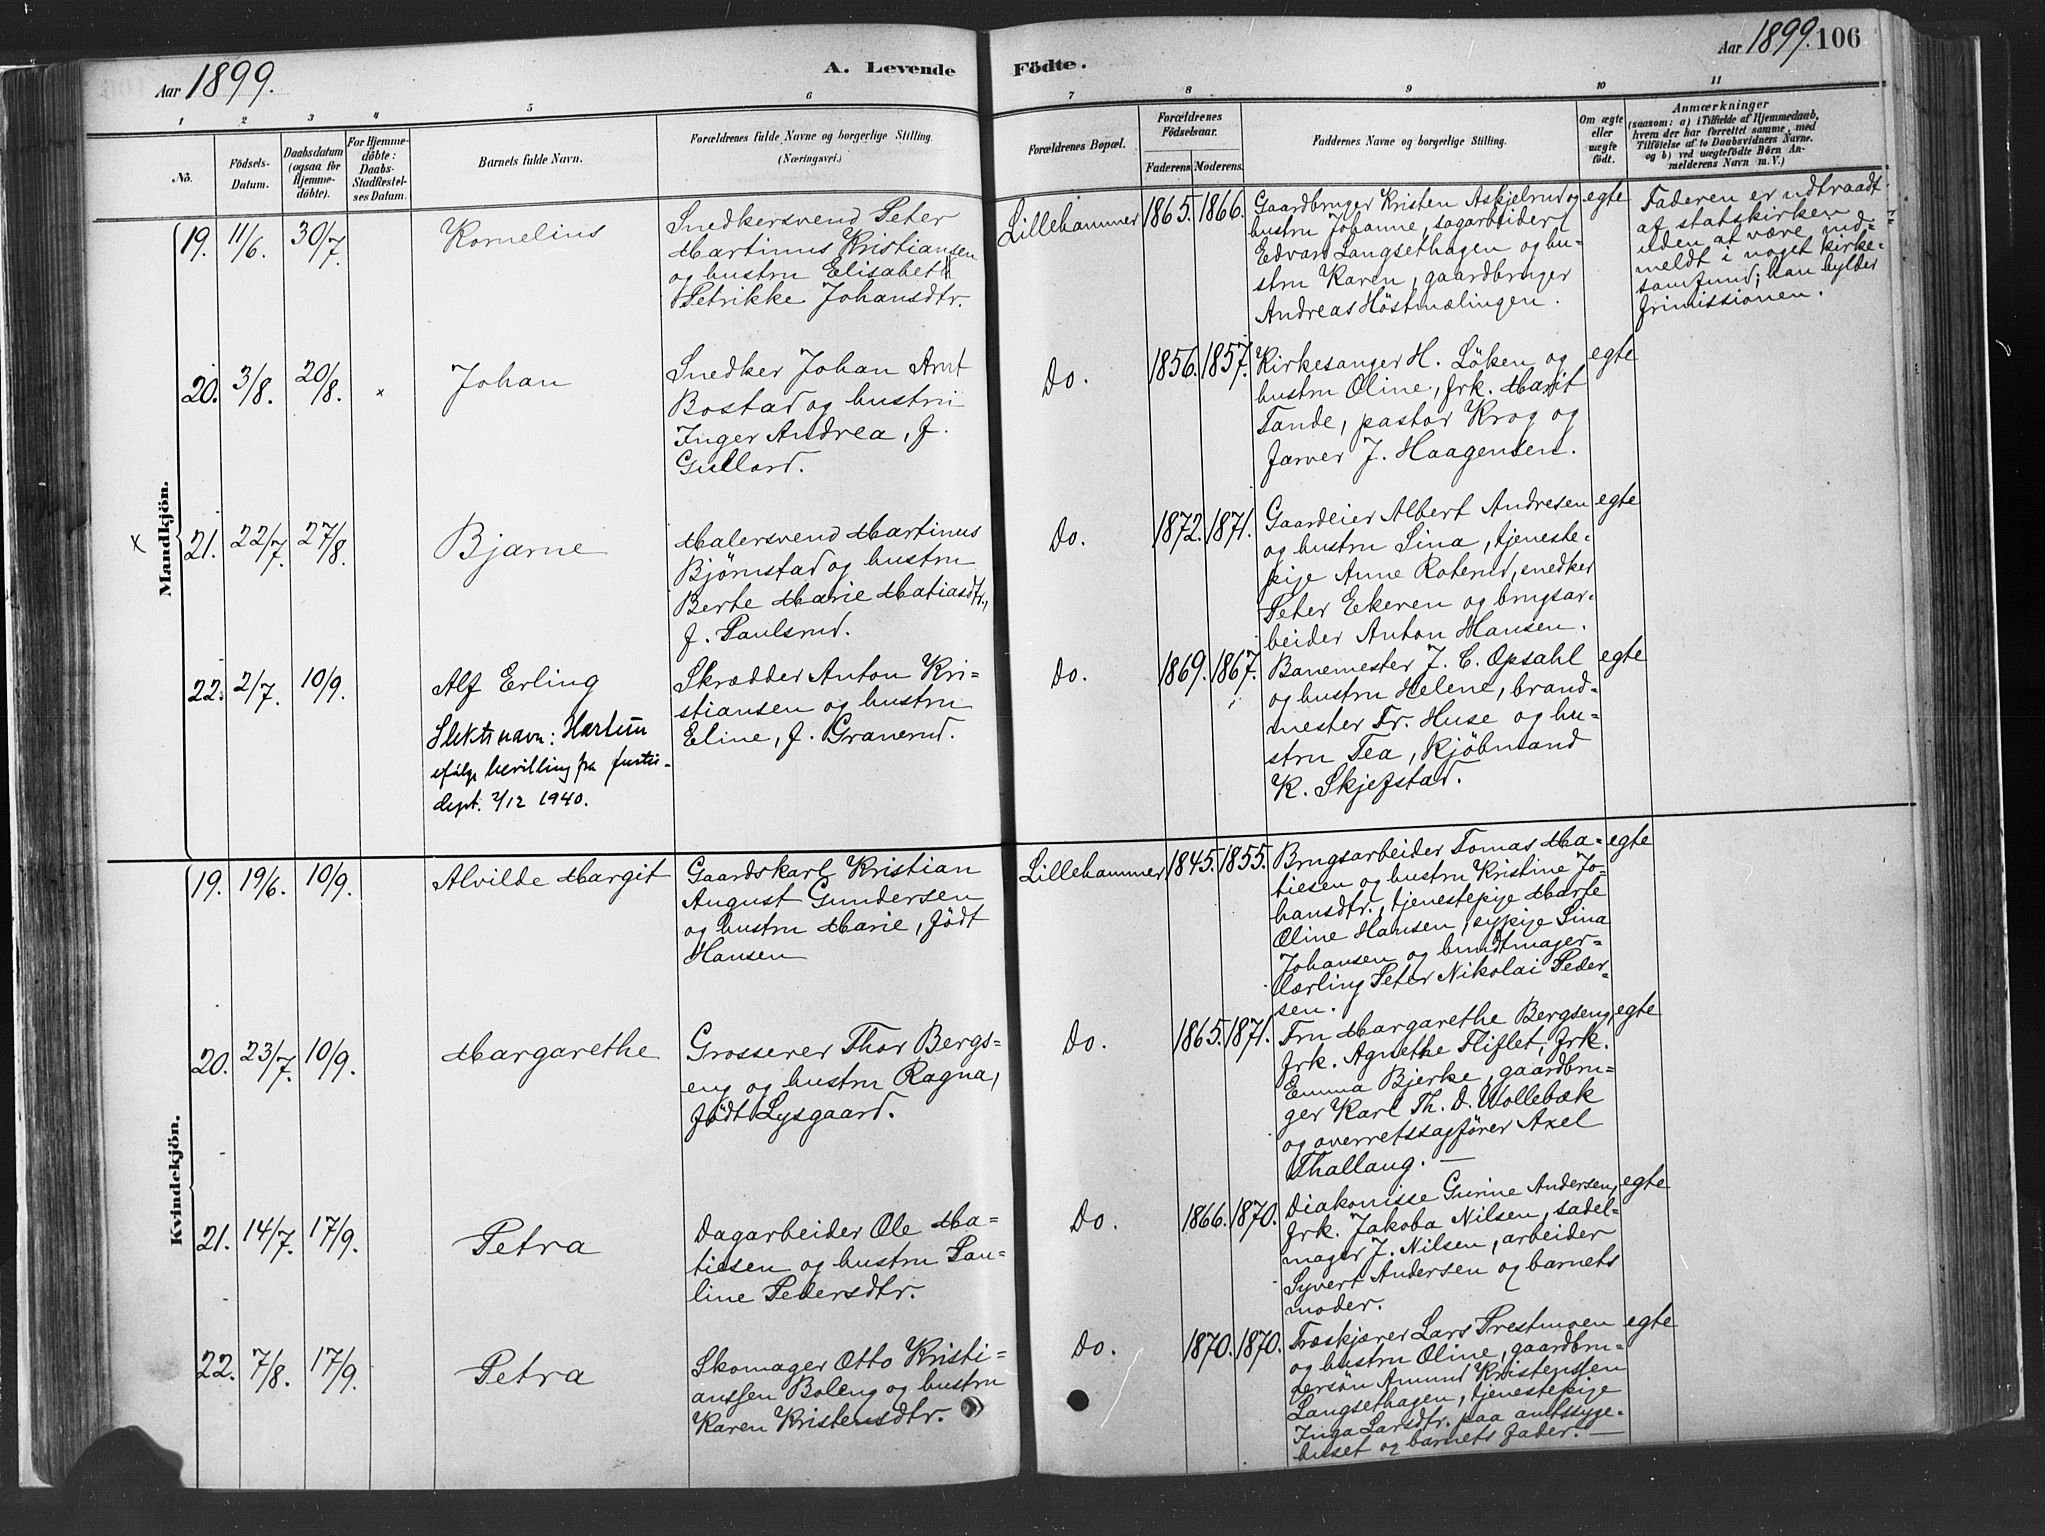 Aar 1899.
A. Levende
Födte.
Aar 1899. 106
1 2 3 4 5 6 7 8 9 10 11
No.
Födsels-
Datum.
Daabsdatum
(ogsaa for
Hjemme-
döbte).
For Hjemme-
döbte:
Daabs-
Stadfæstel-
ses Datum.
Barnets fulde Navn.
Forældrenes fulde Navne og borgerlige Stilling.
(Næringsvei.)
Forældrenes Bopæl.
Forældrenes
Födselsaar.
Faderens. Moderens.
Faddernes Navne og borgerlige Stilling.
Om ægte
eller
uægte
født.
Anmærkninger
(saasom: a) i Tilfælde af Hjemmedaab,
hvem der har forrettet samme, med
Tilföielse af to Daabsvidners Navne.
og b) ved uægtefödte Börn An-
melderens Navn m. V.)
Mandkjön.
19. 11/6. 30/7.
Kornelius
Snedkersvend Peter
Martinus Kristiansen
og hustru Elisabeth
Petrikke Johansdtr.
Lillehammer
1865. 1866.
Gaardbruger Kristen Askjelrud og
hustru Johanne, sagarbeider
Edvard Langsethagen og hu-
stru Karen, gaardbruger
Andreas Höstmælingen.
egte
Faderen er udtraadt
af statskirken
uden at være ind-
meldt i noget kirke-
samfund; han hylder
frimissionen.
20. 3/8. 20/8. x
Johan
Snedker Johan Arnt
Bostad og hustru
Inger Andrea, f.
Gullord.
Do.
1856. 1857.
Kirkesanger H. Löken og
hustru Oline, frk. Marit
Tande, pastor Krog og
farver J. Haagensen.
egte
x
21. 22/7. 27/8.
Bjarne
Malersvend Martinus
Bjørnstad og hustru
Berte Marie Matiasdtr.,
f. Paulsrud.
Do.
1872. 1871.
Gaardeier Albert Andresen
og hustru Lina, tjeneste-
pige Anne Roterud, snedker
Peter Ekeren og brugsar-
beider Anton Hansen.
egte
22. 2/7. 10/9.
Alf Erling
Slektsnavn: Hartun
ifølge bevilling fra justis-
dept. 2/12 1940.
Skrædder Anton Kri-
stiansen og hustru
Eline, f. Granerud.
Do.
1869. 1867.
Banemester J. C. Opsahl
og hustru Helene, brand-
mester Fr. Huse og hu-
stru Tea, kjöbmand
K. Skjefstad.
egte
Kvindekjön.
19. 19/6. 10/9.
Alvilde Margit
Gaardskarl Kristian
August Gundersen
og hustru Marie, født
Hansen
Lillehammer
1845. 1855.
Brugsarbeider Tomas Ma-
tiesen og hustru Kristine Jo-
hansdtr., tjenestepige Marte
Oline Hansen, sypige Lina
Johansen og bundtmager-
lærling Peter Nikolai Peder-
sen.
egte
20. 23/7. 10/9.
Margarethe
Grosserer Thor Bergs-
eng og hustru Ragna,
født Lysgaard.
Do.
1865. 1871.
Fru Margarethe Bergseng,
frk. Agnethe Fliflet, frk.
Emma Bjerke, gaardbru-
ger Karl Th. D. Wollebæk
og overretssagfører Axel
Thallaug.
egte
21. 14/7. 17/9.
Petra
Dagarbeider Ole Ma-
tiesen og hustru Pau-
line Pedersdtr.
Do.
1866. 1870.
Diakonisse Gurine Andersen,
frk. Jakoba Nilsen, sadel-
mager J. Nilsen, arbeider
Syvert Andersen og barnets
moder.
egte
22. 7/8. 17/9.
Petra
Skomager Otto Kristi-
anssen Boleng og hustru
Karen Kristensdtr.
Do.
1870. 1870.
Træskjærer Lars Prestmoen
og hustru Oline, gaardbru-
dersön Amund Kristenssen
Langsethagen, tjenestepige
Inga Larsdtr. paa amtssyge-
huset og barnets fader.
egte